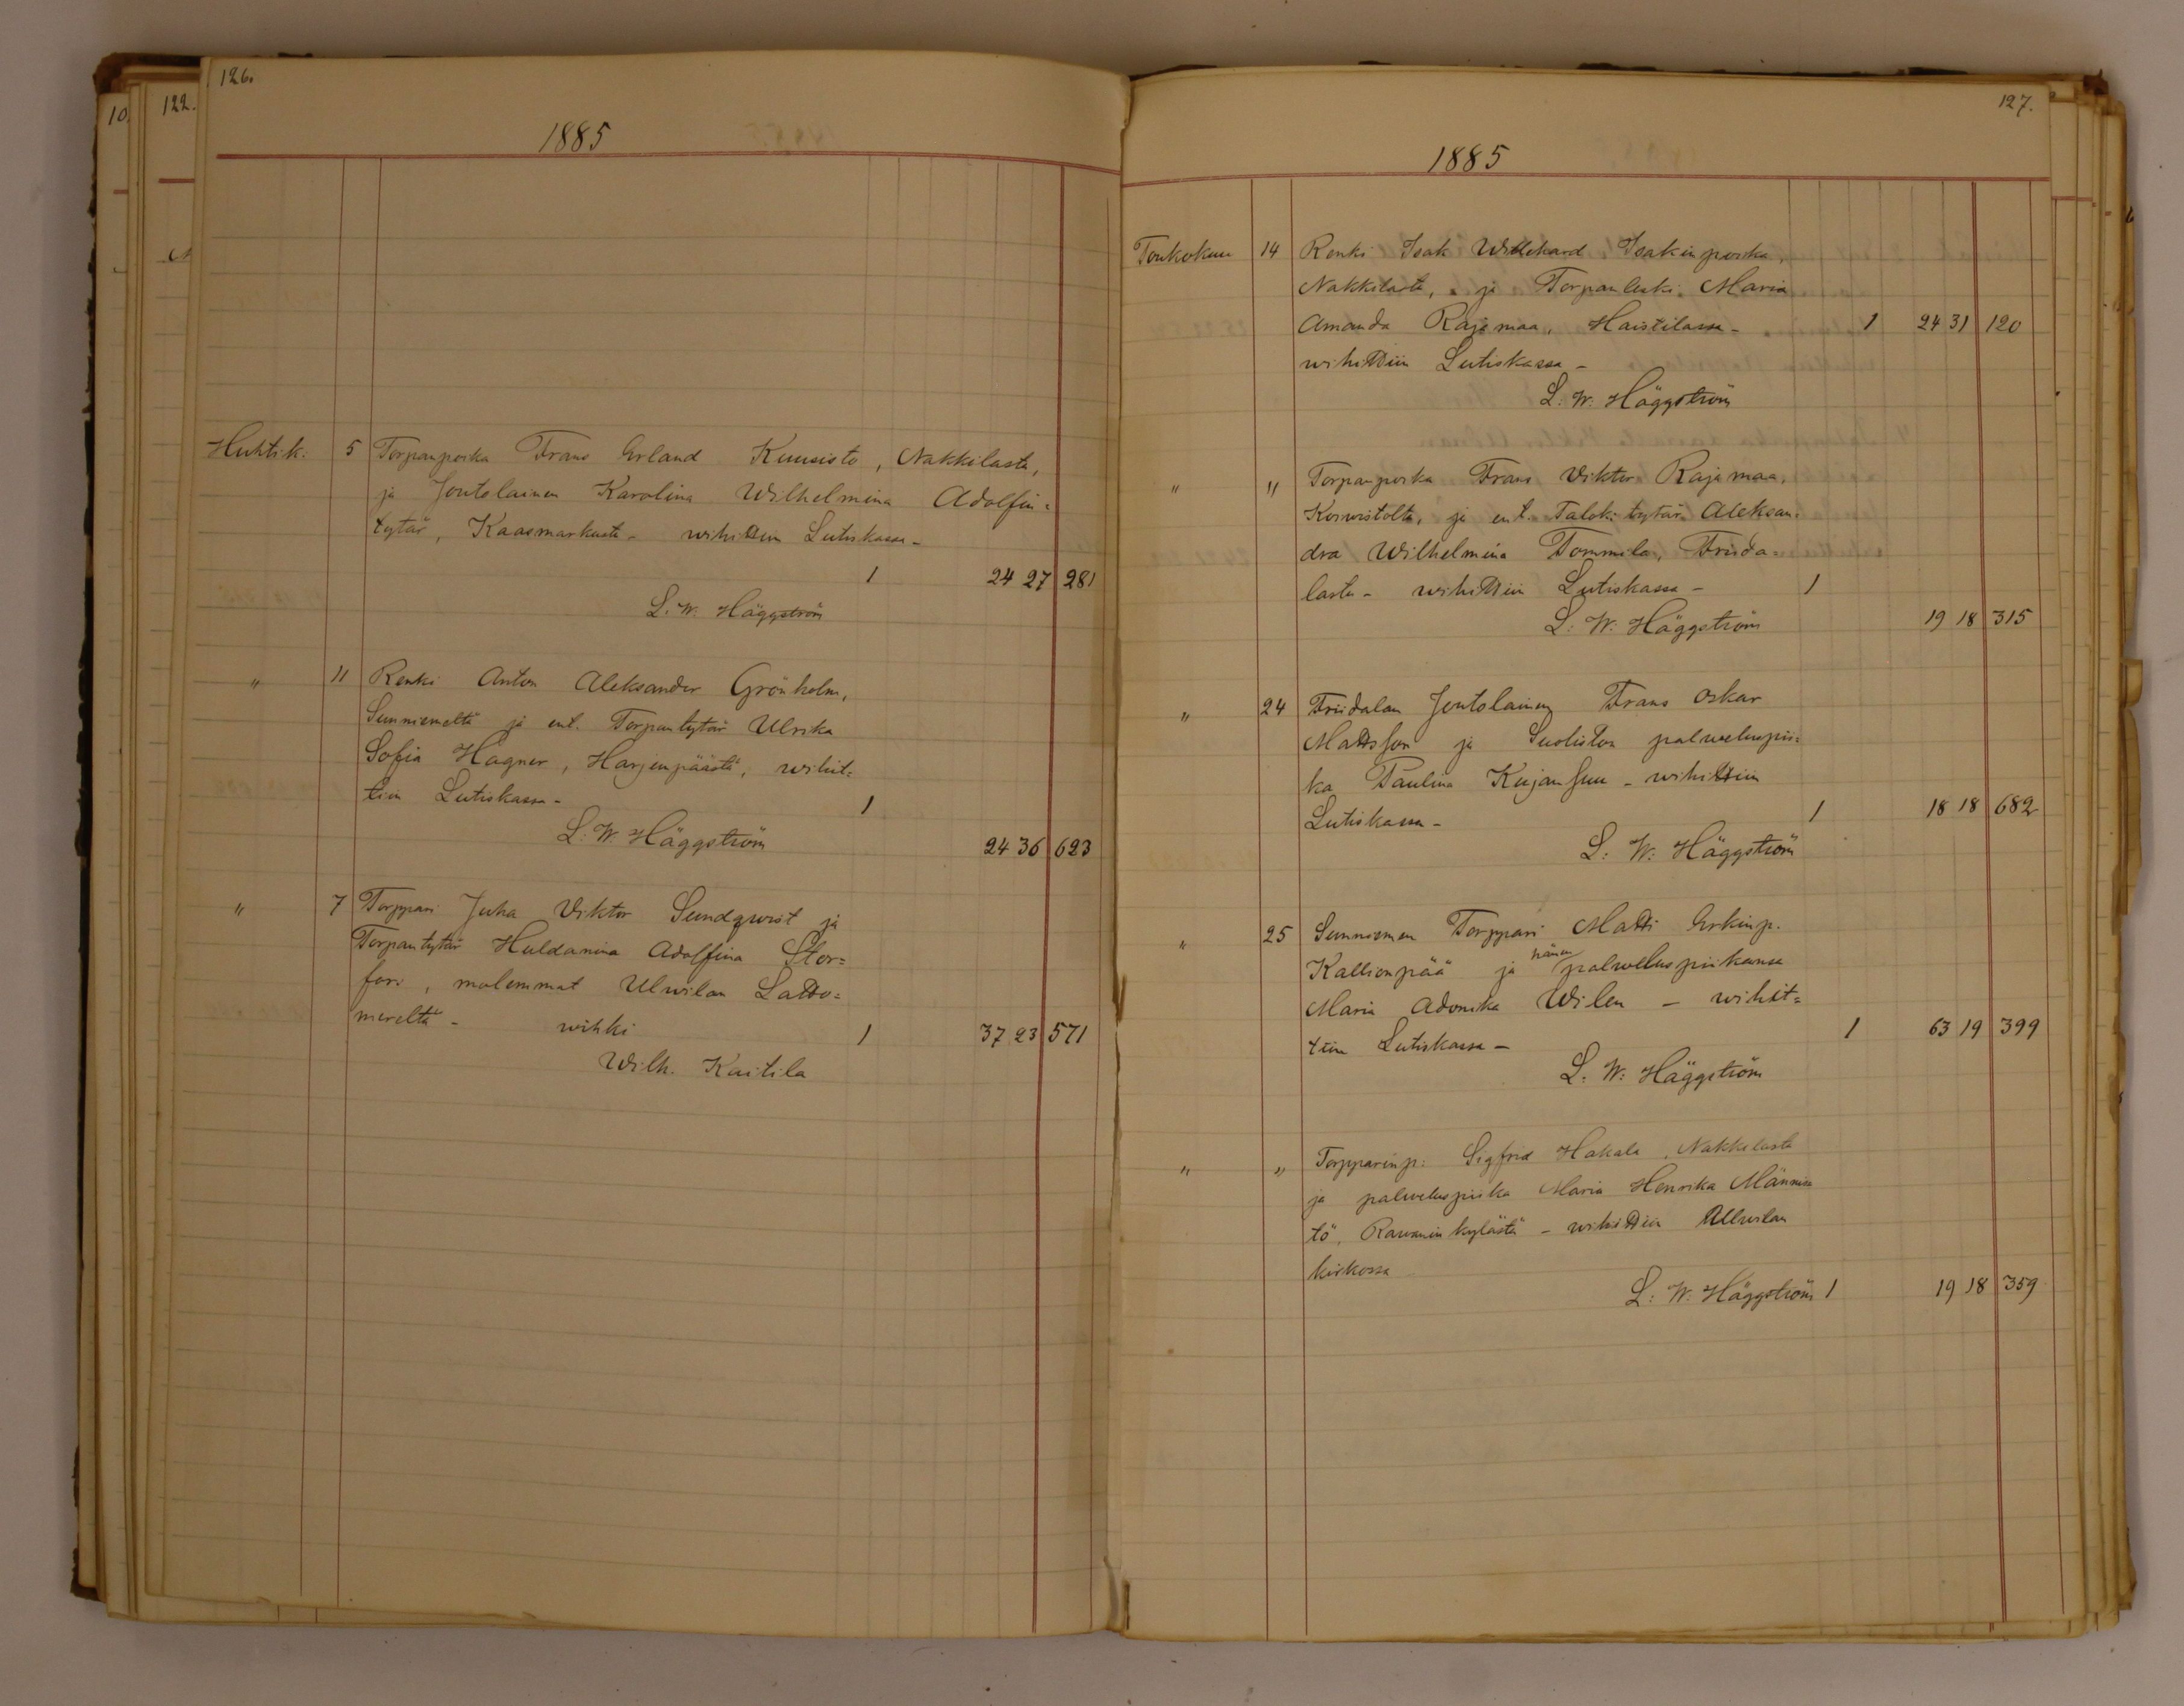 10.
122.
126.
1885
Huhtik. 5 Torpanpoika Frans Erland Kuusisto, Nakkilasta,
ja Joutolainen Karolina Wilhelmina Adolfin=
tytär, Kaasmarkusta - wihittiin Lutiskassa -
1 24 27 281
L. W. Häggström
" 11 Renki Anton Aleksander Grönholm,
Sunniemeltä ja ent. Torpantytär Ulrika
Sofia Hagner, Harjenpäästä, wihit=
tiin Lutiskassa - 1
L. W. Häggström 24 36 623
" 7 Torppari Juha Viktor Sundqwist ja
Torpantytär Huldanina Adolfina Stor=
fors, molemmat Ulwilan Latto=
mereltä - wihki 1 37 23 571
Wilh. Kaitila
127.
1885
Toukokuu 14 Renki Isak Willehard Isakinpoika,
Nakkilasta, ja Torpanleski Maria
Amanda Rajamaa, Haistilassa - 1 24 31 120
wihittiin Lutiskassa -
L. W. Häggström
" " Torpanpoika Frans Viktor Rajamaa,
Korwistolta, ja ent. Talok. tytär Aleksan=
dra Wilhelmina Tommila, Friida=
lasta - wihittiin Lutiskassa - 1
L. W. Häggström 19 18 315
" 24 Friidalan Joutolainen Frans Oskar
Mattsson ja Suoliston palweluspii=
ka Paulina Kujansuu - wihittiin
Lutiskassa - 1 18 18 682
L. W. Häggström
" 25 Sunniemen Torppari Matti Erkinp.
Kallionpää ja hänen palweluspiikansa
Maria Adonika Wilen - wihit=
tiin Lutiskassa - 1 63 19 399
L. W. Häggström
" " Torpparinp. Sigfrid Hakala, Nakkilasta
ja palweluspiika Maria Henrika Männis
tö, Rawanin kylästä - wihittiin Ullwilan
kirkossa
L. W. Häggström 1 19 18 359